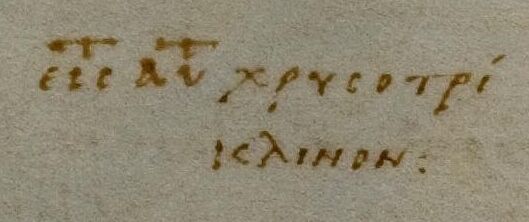 εις τ αυτ χρυσοτρί
κλινον: